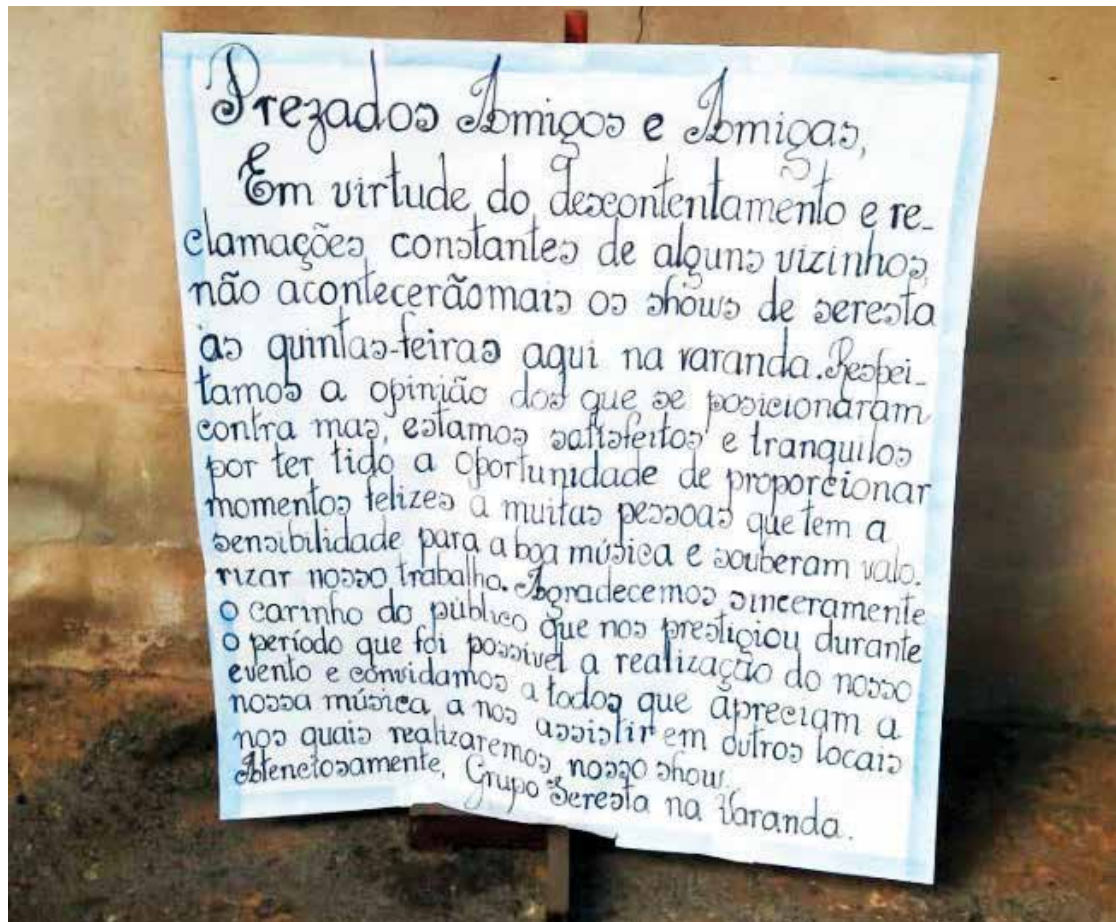 Prezados Amigos e Amigas,
Em virtude do descontentamento e re-
clamações constantes de alguns vizinhos,
não acontecerão mais os shows de seresta
às quintas-feiras aqui na varanda. Respei-
tamos a opinião dos que se posicionaram
contra mas, estamos satisfeitos e tranquilos
por ter tido a oportunidade de proporcionar
momentos felizes a muitas pessoas que tem a
sensibilidade para a boa música e souberam valo-
rizar nosso trabalho. Agradecemos sinceramente
o carinho do público que nos prestigiou durante
o período que foi possível a realização do nosso
evento e convidamos a todos que apreciam a
nossa música a nos assistir em outros locais
nos quais realizaremos nosso show.
Atenciosamente, Grupo Seresta na Varanda.